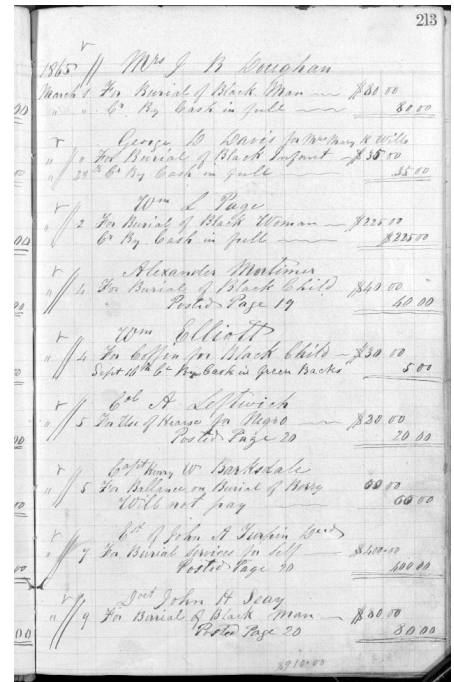 213
1865 // Mrs J B Doughan
March 1 For Burial of Black Man — $80.00
" " Cr By Cash in full — 80.00
George D Davis for Mrs Mary K Wills
" " For Burial of Black Infant — $35.00
" 29th Cr By Cash in full 35.00
Wm L Page
" 2 For Burial of Black Woman — $225.00
Cr By Cash in full — $225.00
Alexander Mortimer
" 4 For Burial of Black Child $40.00
Posted Page 19 40.00
Wm Elliott
" 4 For Coffin for Black Child — $30.00
Sept 16th Cr By Cash in Green Backs 5.00
Col A Leftwich
" 5 For Use of Hearse for Negro — $20.00
Posted Page 20 20.00
Capt Henry W Barksdale
" 5 For Ballance on Burial of 60.00
Will not pay — 60.00
Est of John A Turpin Decd
" 7 For Burial Services for Self — $400.00
Posted Page 20 400.00
Doct John H Seay
" 9 For Burial of Black Man — $80.00
Posted Page 20 80.00
$910.00